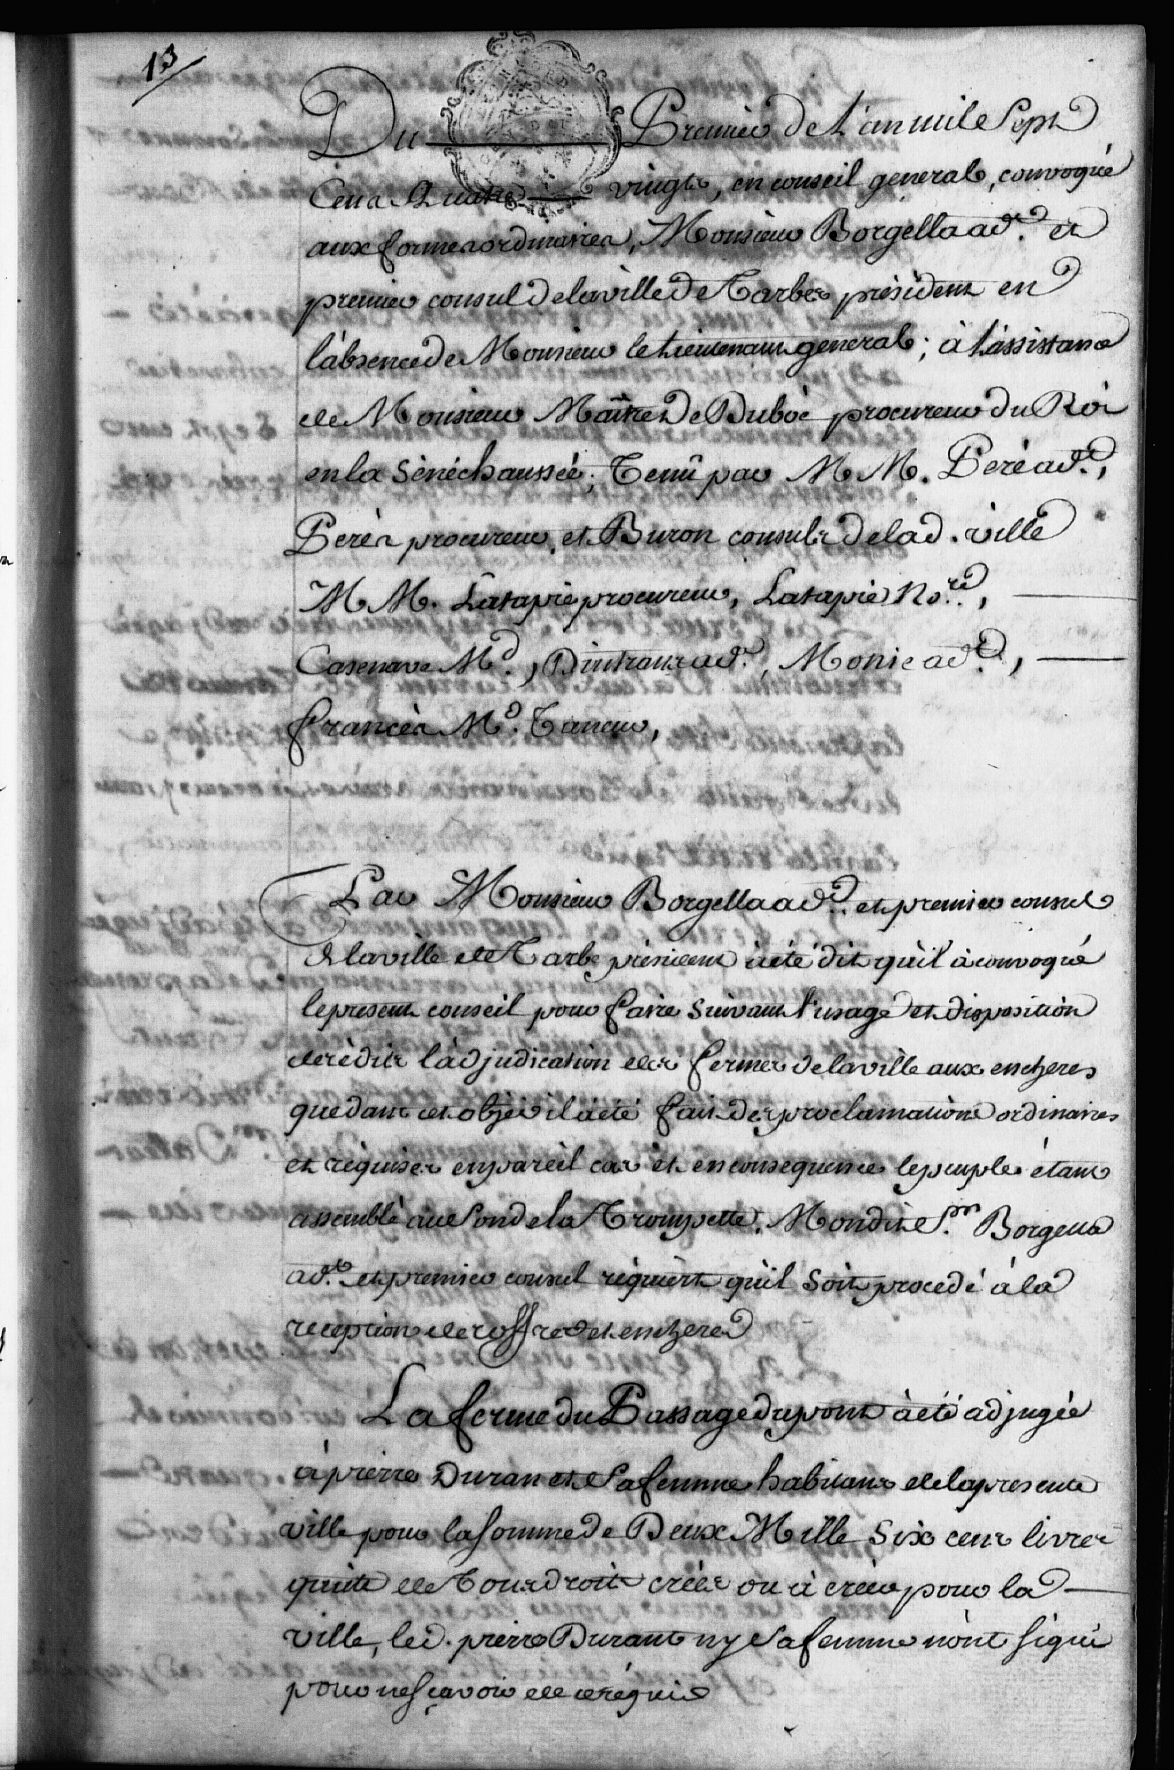 13
Du Premier de L'an mil Sept
Cens Quatre vingts, en conseil general, convoqué
aux formes ordinaires, Monsieur Borgella adt. et
premier consul de la ville de Tarbes président en
l'absence de Monsieur le Lieutenant general; à l'assistance
de Monsieur Maître de Duboé procureur du Roi
en la Sénéchaussée; Tenû par M M. Peré adt.,
Perés procureur, et Buron consuls de lad. ville
M M. Latapie procureur, Latapie No.re,
Casenave Md., Dintrans adt., Monie adt.,
francés Md. Taneur,
Par Monsieur Borgella adt. et premier consul
de la ville de Tarbe président à été dit qu'il à convoqué
le present conseil pour faire suivant l'usage et disposition
des édits l'adjudication des fermes de la ville aux encheres
que dans cet objet il à été fait des proclamations ordinaires
et réquises en pareil cas et en consequence le peuple étant
assemblé au Son de la Trompette. Mondit S.r Borgella
adt. et premier consul réquiert qu'il Soit procedé à la
reception des offres et encheres
La ferme du Passage du pont à été adjugée
à pierre Duran et Sa femme habitans de la presente
ville pour la Somme de Deux Mille Six cens livres
quitte de Tous droits créés ou à créer pour la
ville, led. pierre Durant ny Sa femme n'ont signé
pour ne sçavoir de ce réquis